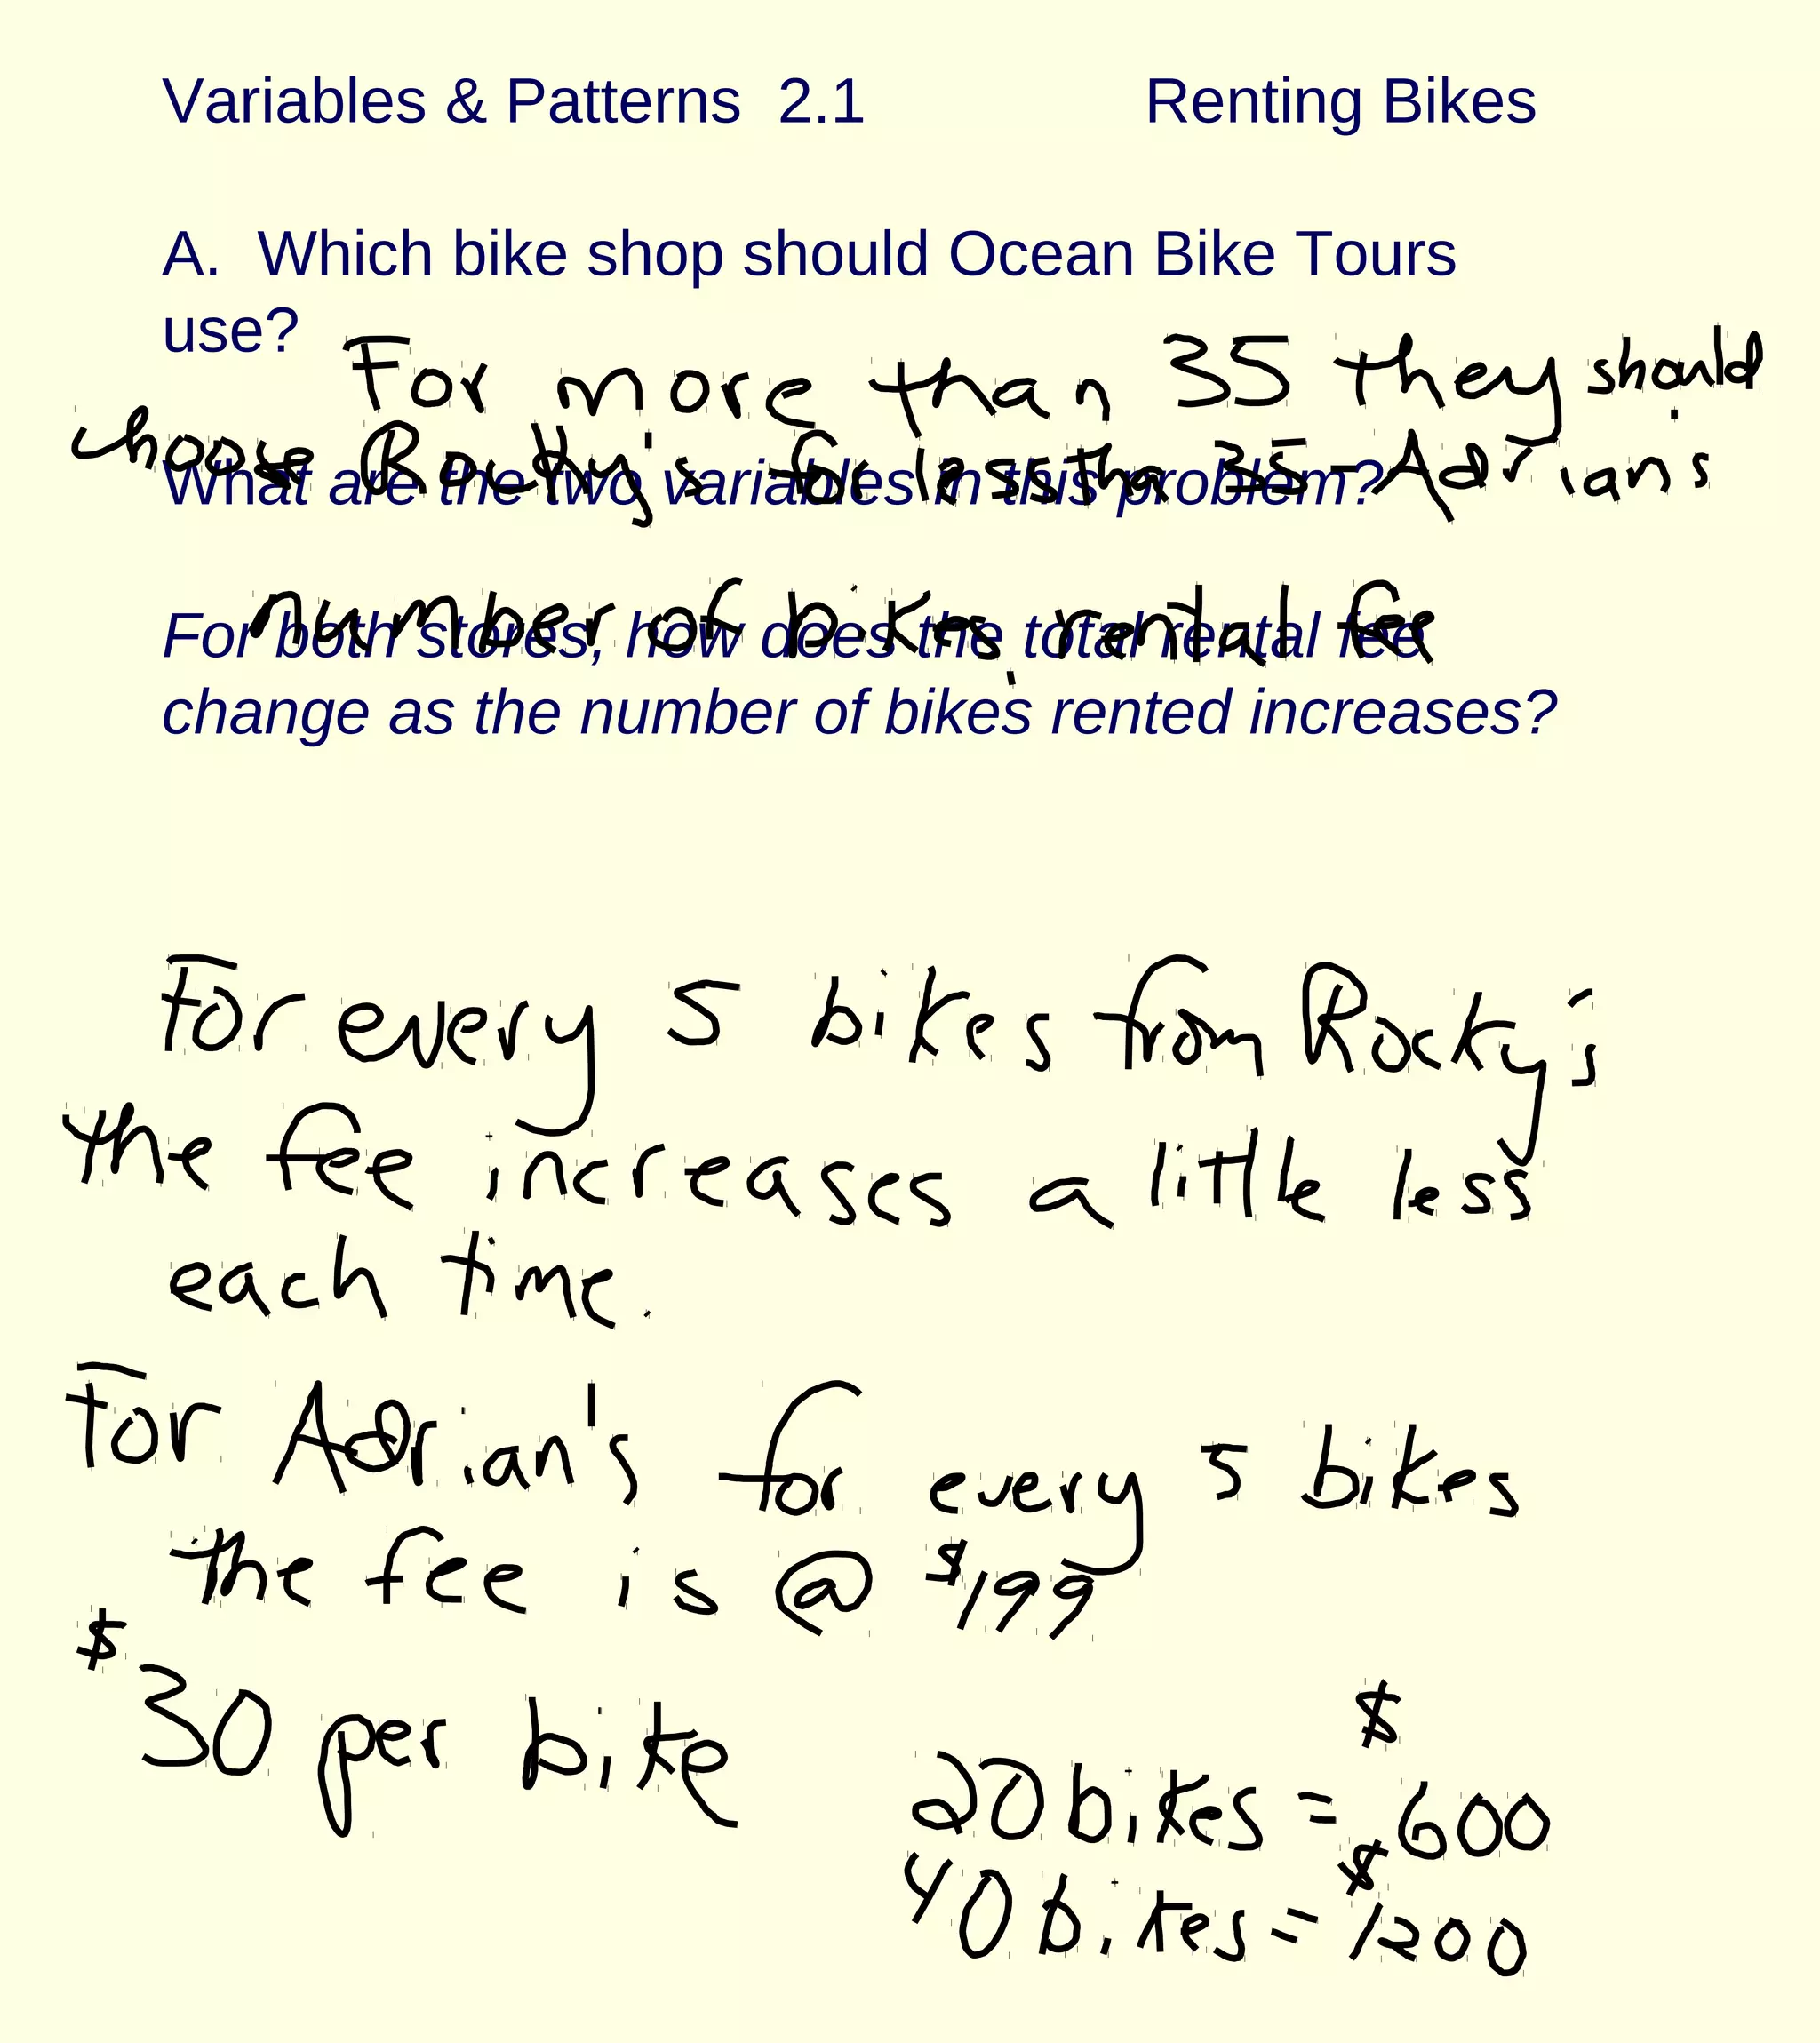 Variables & Patterns 2.1 Renting Bikes
A. Which bike shop should Ocean Bike Tours
use?
For more than 35 they should
choose Rocky's for less tha 35 - Adrians
What are the two variables in this problem?
number of bikes, rental fee
For both stores, how does the total rental fee
change as the number of bikes rented increases?
For every 5 bikes from Rocky's
the fee increases a little less
each time.
For Adrian's for every 5 bikes
the fee is @ $199
$30 per bike
20 bikes = $600
40 bikes = $1200